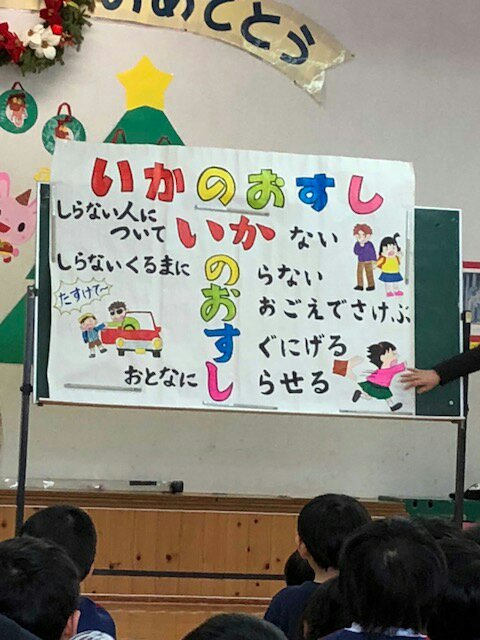 おめでとう
いかのおすし
しらない人に
ついて いか ない
しらないくるまに のらない
たすけて〜
おおごえでさけぶ
すぐににげる
おとなに しらせる